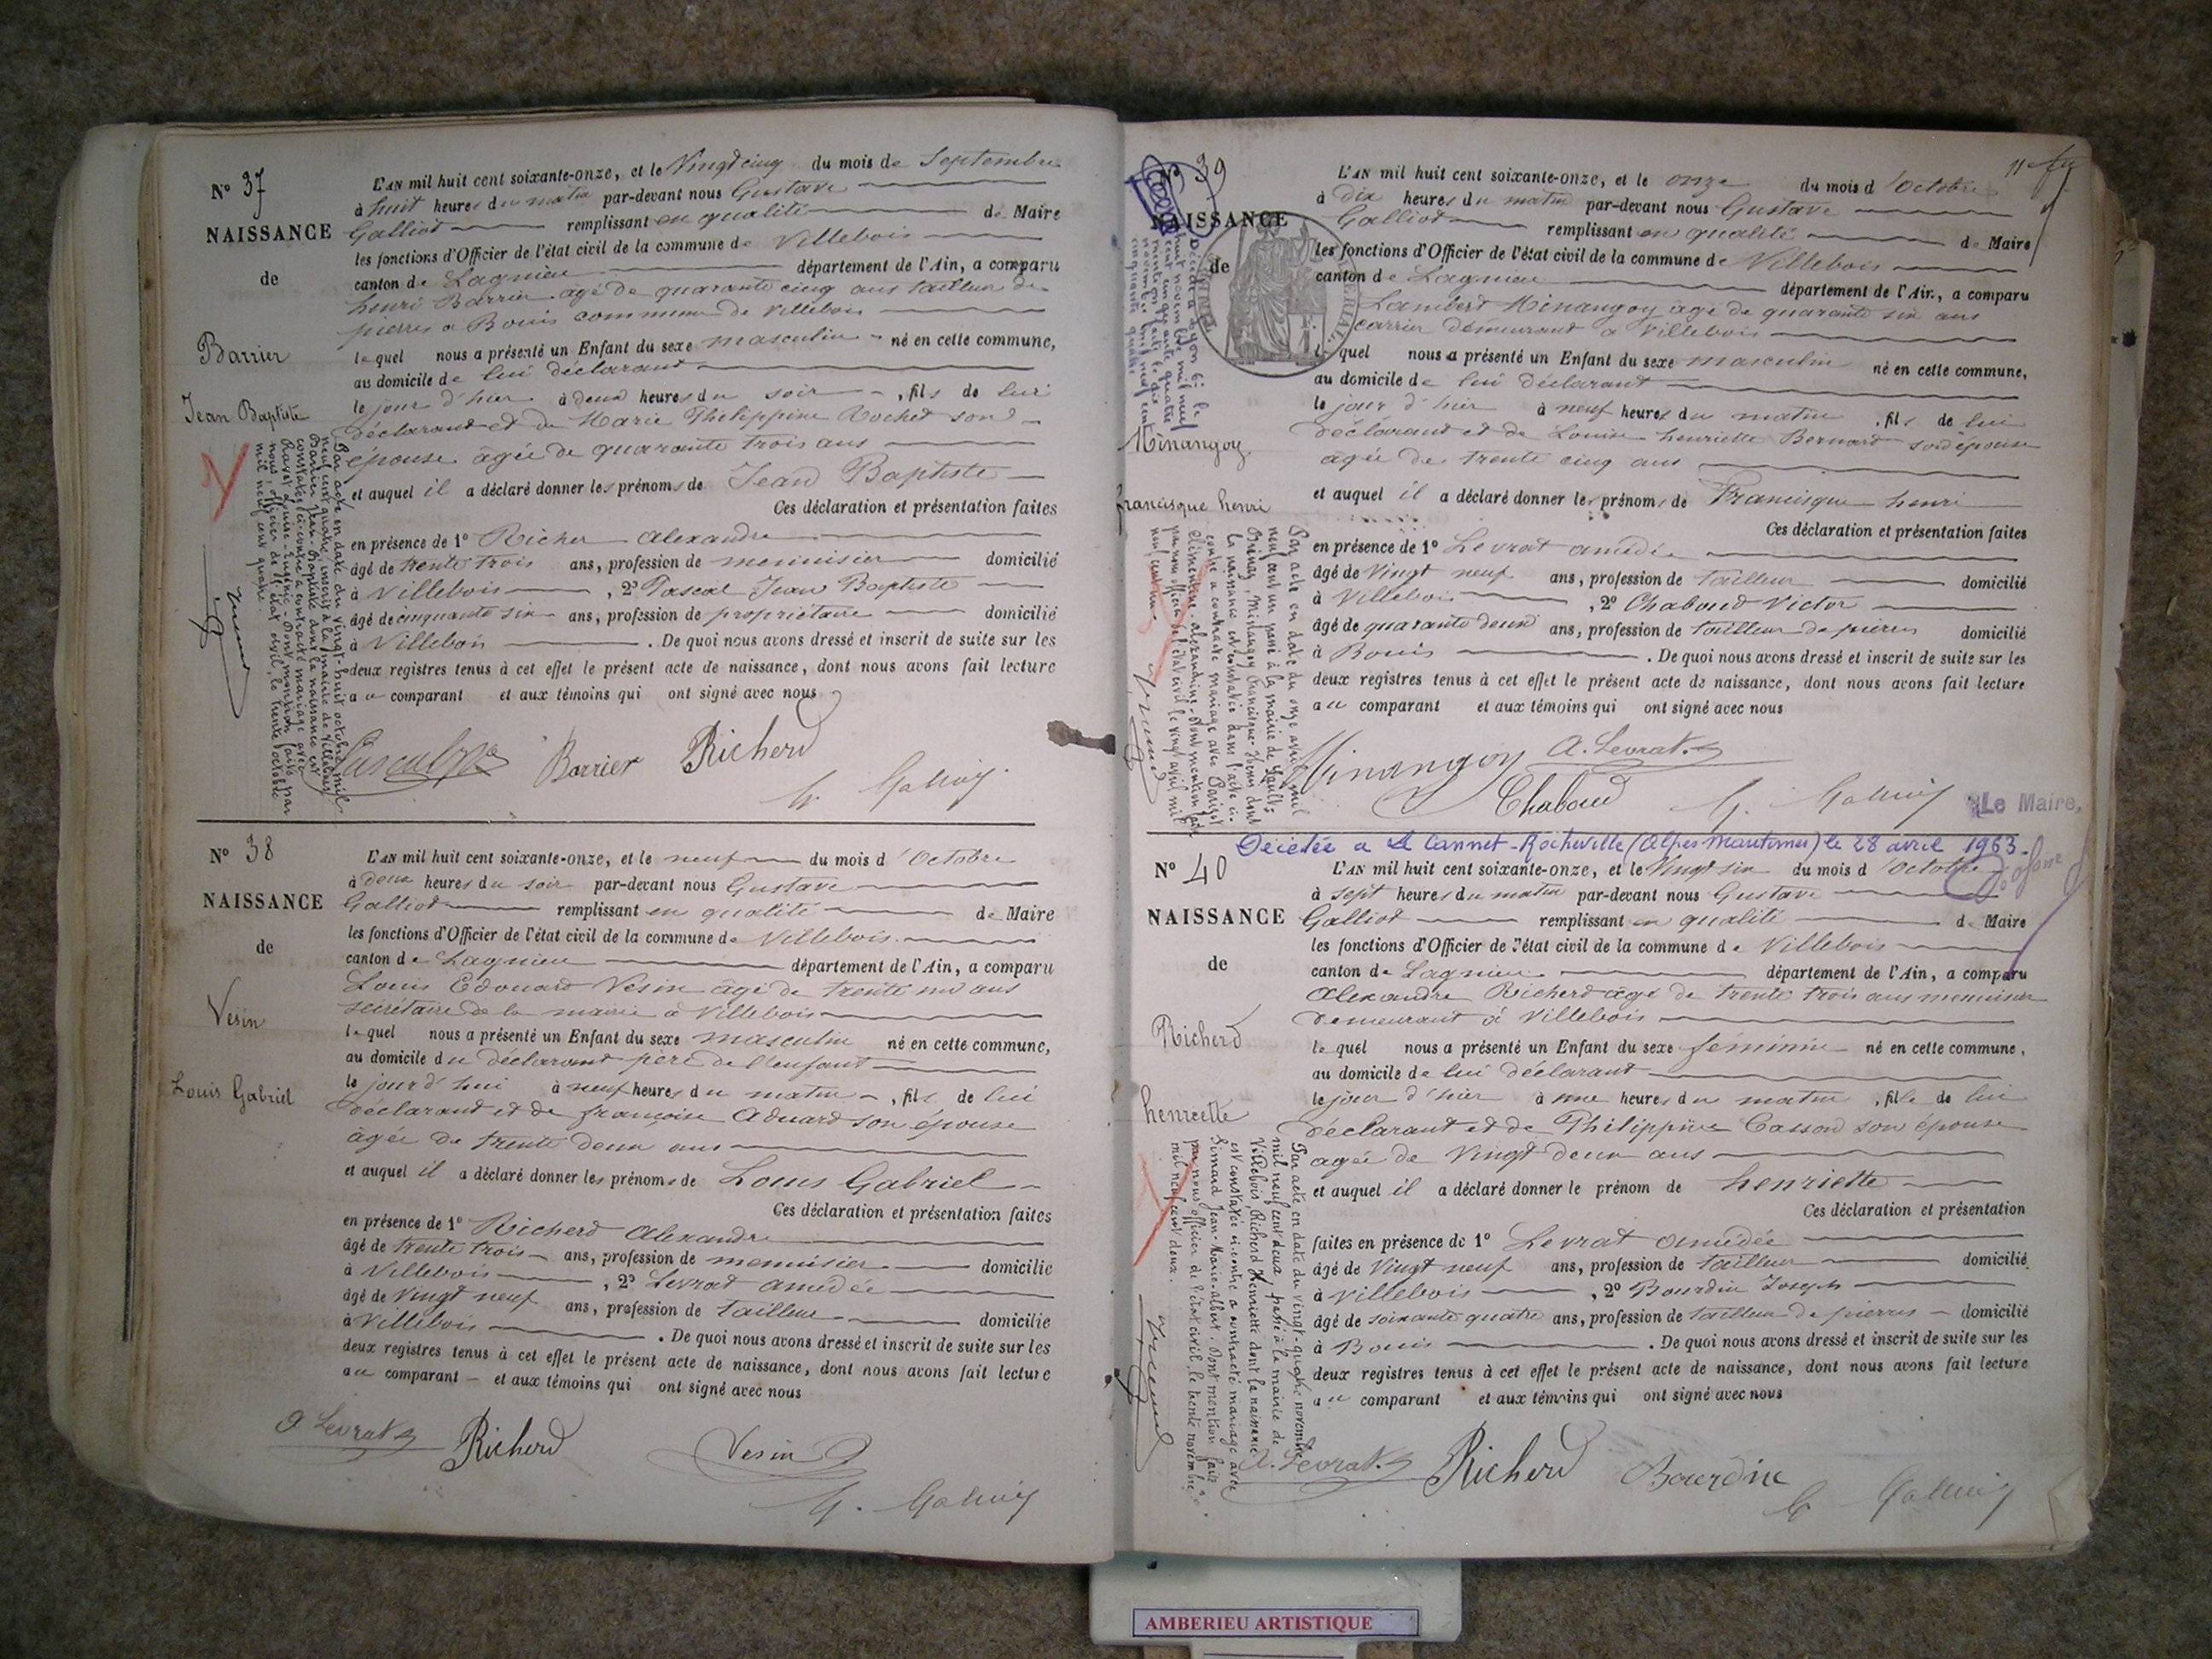 N° 37
NAISSANCE
de
Barrier
Jean Baptiste
L'AN mil huit cent soixante-onze, et le Vingt cinq du mois de Septembre
à huit heures du matin par-devant nous Gustave
Galliot remplissant en qualité de Maire
les fonctions d'Officier de l'état civil de la commune de Villebois
canton de Lagnieu département de l'Ain, a comparu
henri Barrier agé de quarante cinq ans tailleur de
pierres a Bouis commune de Villebois
lequel nous a présenté un Enfant du sexe masculin né en cette commune,
au domicile de lui déclarant
le jour d'hier à deux heures du soir, fils de lui
déclarant et de Marie Philippine Rochet son
épouse agée de quarante trois ans
et auquel il a déclaré donner les prénoms de Jean Baptiste
Ces déclaration et présentation faites
en présence de 1° Richer Alexandre
âgé de trente trois ans, profession de menuisier domicilié
à Villebois, 2° Pascal Jean Baptiste
âgé de cinquante six ans, profession de propriétaire domicilié
à Villebois. De quoi nous avons dressé et inscrit de suite sur les
deux registres tenus à cet effet le présent acte de naissance, dont nous avons fait lecture
au comparant et aux témoins qui ont signé avec nous
Par acte en date du vingt-huit octobre mil
neuf cent quatre, inscrit à la mairie de Villebois,
Barrier Jean-Baptiste dont la naissance est
constatée ci-contre a contracté mariage avec
Dont mention faite par
nous, officier de l'état civil, le trente octobre
mil neuf cent quatre.
Barrier Richerd
N° 38
NAISSANCE
de
Vesin
Louis Gabriel
L'AN mil huit cent soixante-onze, et le neuf du mois d'Octobre
à deux heures du soir par-devant nous Gustave
Galliot remplissant en qualité de Maire
les fonctions d'Officier de l'état civil de la commune de Villebois
canton de Lagnieu département de l'Ain, a comparu
Louis Edouard Vesin agé de trente un ans
secrétaire de la mairie à Villebois
lequel nous a présenté un Enfant du sexe masculin né en cette commune,
au domicile du déclarant père de l'enfant
le jour d'hui à neuf heures du matin, fils de lui
déclarant et de françoise Aduard son épouse
âgée de trente deux ans
et auquel il a déclaré donner les prénoms de Louis Gabriel
Ces déclaration et présentation faites
en présence de 1° Richerd Alexandre
âgé de trente trois ans, profession de menuisier domicilié
à Villebois, 2° Levrat amédée
âgé de Vingt neuf ans, profession de tailleur domicilié
à Villebois. De quoi nous avons dressé et inscrit de suite sur les
deux registres tenus à cet effet le présent acte de naissance, dont nous avons fait lecture
au comparant et aux témoins qui ont signé avec nous
A Levrat Richerd Vesin
N° 39
NAISSANCE
de
Minangoy
francisque henri
L'AN mil huit cent soixante-onze, et le onze du mois d'Octobre
à Dix heures du matin par-devant nous Gustave
Galliot remplissant en qualité de Maire
les fonctions d'Officier de l'état civil de la commune de Villebois
canton de Lagnieu département de l'Ain, a comparu
Lambert Minangoy agé de quarante six ans
carrier demeurant à Villebois
lequel nous a présenté un Enfant du sexe masculin né en cette commune,
au domicile de lui déclarant
le jour d'hier à neuf heures du matin, fils de lui
déclarant et de Louise henriette Bernard son épouse
agée de trente cinq ans
et auquel il a déclaré donner les prénoms de Francisque henri
Ces déclaration et présentation faites
en présence de 1° Levrat amédée
âgé de Vingt neuf ans, profession de tailleur domicilié
à Villebois, 2° Chaboud Victor
âgé de quarante deux ans, profession de tailleur de pierres domicilié
à Bouis. De quoi nous avons dressé et inscrit de suite sur les
deux registres tenus à cet effet le présent acte de naissance, dont nous avons fait lecture
au comparant et aux témoins qui ont signé avec nous
Par acte en date du onze avril mil
neuf cent un passé à la mairie de
Minangoy Francisque-Henri dont
la naissance est constatée dans l'acte ci-
contre a contracté mariage avec
Dont mention faite
par nous officier de l'état civil le vingt avril mil
neuf cent un.
Minangoy A. Levrat
Chaboud
Le Maire,
Décédée a Le Cannet-Rocheville (Alpes Maritimes) le 28 avril 1963.
N° 40
NAISSANCE
de
Richerd
henriette
L'AN mil huit cent soixante-onze, et le Vingt six du mois d'Octobre
à sept heures du matin par-devant nous Gustave
Galliot remplissant en qualité de Maire
les fonctions d'Officier de l'état civil de la commune de Villebois
canton de Lagnieu département de l'Ain, a comparu
Alexandre Richerd agé de trente trois ans menuisier
demeurant à Villebois
lequel nous a présenté un Enfant du sexe féminin né en cette commune,
au domicile de lui déclarant
le jour d'hier à une heures du matin, fille de lui
déclarant et de Philippine Casson son épouse
agée de Vingt deux ans
et auquel il a déclaré donner le prénom de henriette
Ces déclaration et présentation
faites en présence de 1° Levrat amédée
âgé de Vingt neuf ans, profession de tailleur domicilié
à Villebois, 2° Bourdin Joseph
âgé de soixante quatre ans, profession de tailleur de pierres domicilié
à Bouis. De quoi nous avons dressé et inscrit de suite sur les
deux registres tenus à cet effet le présent acte de naissance, dont nous avons fait lecture
au comparant et aux témoins qui ont signé avec nous
Par acte en date du vingt quatre novembre
mil neuf cent deux passé à la mairie de
Villebois, Richerd Henriette dont la naissance
est constatée ci-contre a contracté mariage avec
Simand Jean-Marie-Albert. Dont mention faite
par nous officier de l'état civil, le trente novembre
mil neuf cent deux.
A. Levrat Richerd Bourdin
AMBERIEU ARTISTIQUE